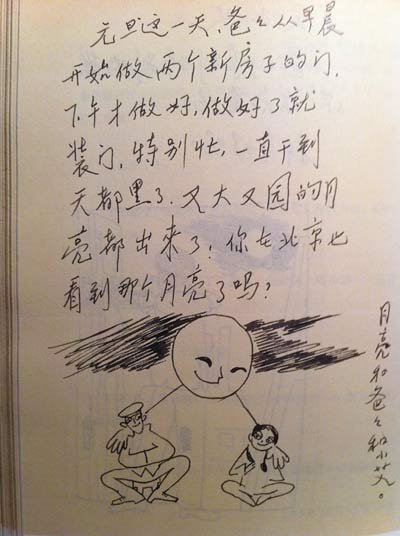 元旦这一天，爸々从早晨
开始做两个新房子的门，
下午才做好，做好了就
装门，特别忙，一直干到
天都黑了．又大又园的月
亮都出来了！你在北京也
看到那个月亮了吗？
月亮和爸々和小艾。